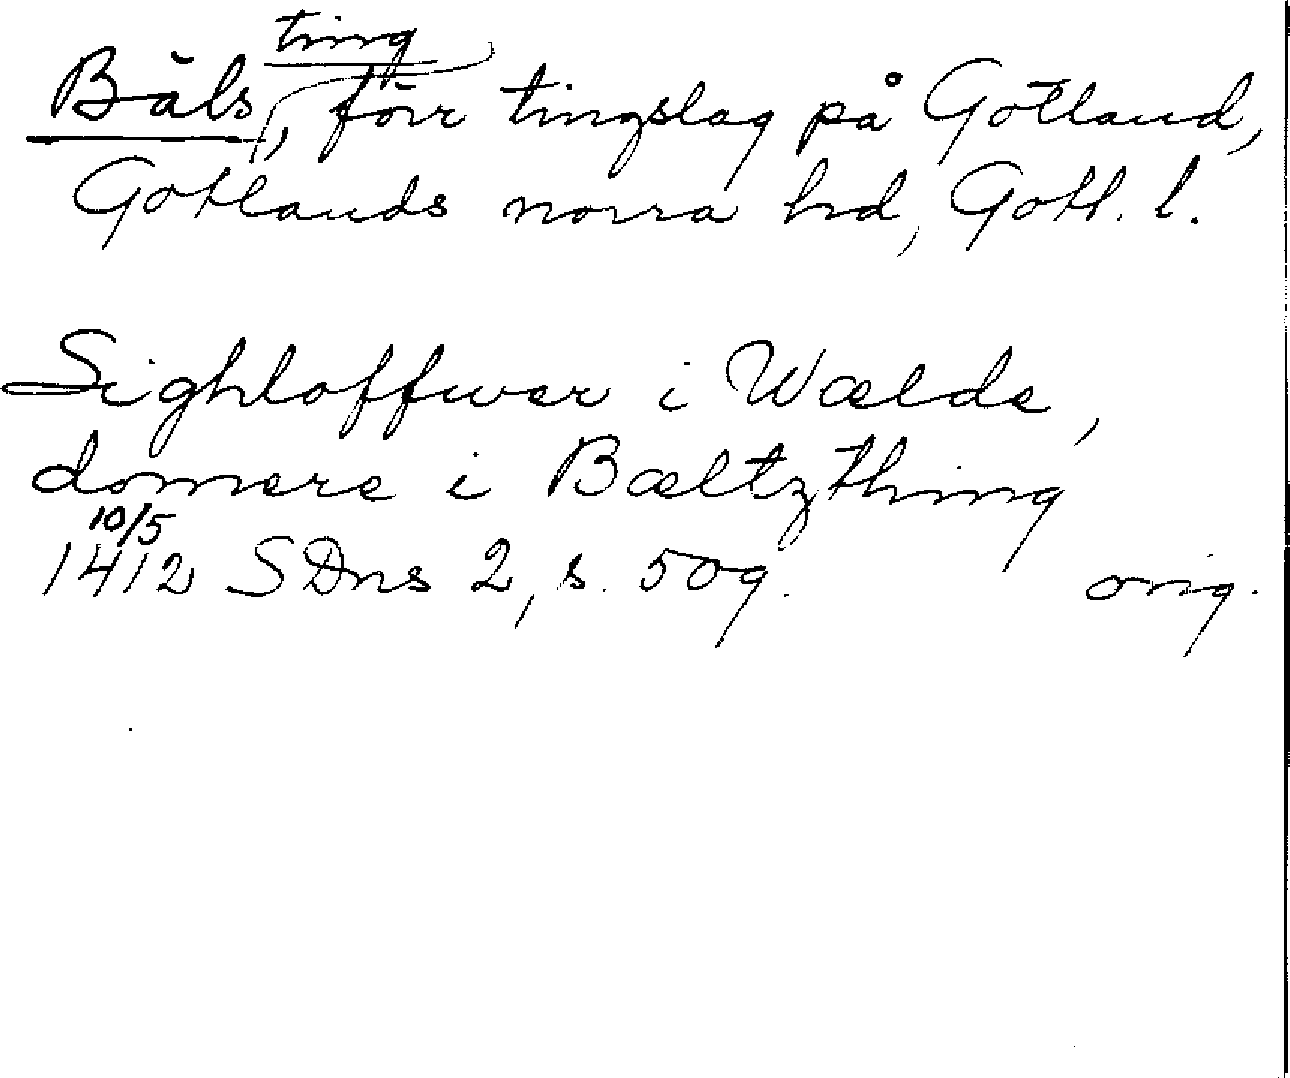 Bälsting, förr tingslag på Gotland,
Gotlands norra hd, Gotl. l.
Sighloffwer i Wælde,
domere i Bæltzthing
10/5
1412 SDns 2, s. 509. orig.